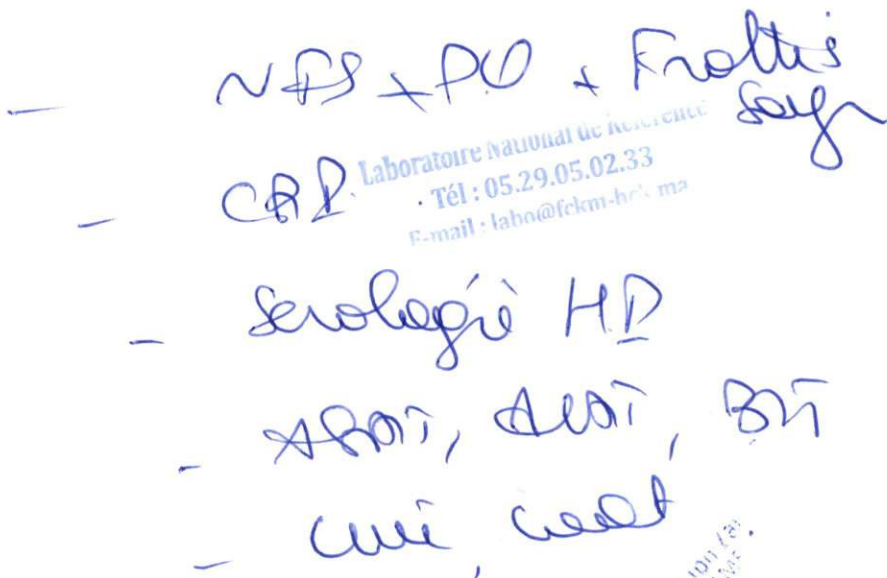 - NFS + PQ + Frottis
Sang
Laboratoire National de Référence
- CRP
Tél : 05.29.05.02.33
E-mail : labo@fckm-hck.ma
- Serologie HP
- ASAT, ALAT, BT
- urée, créat